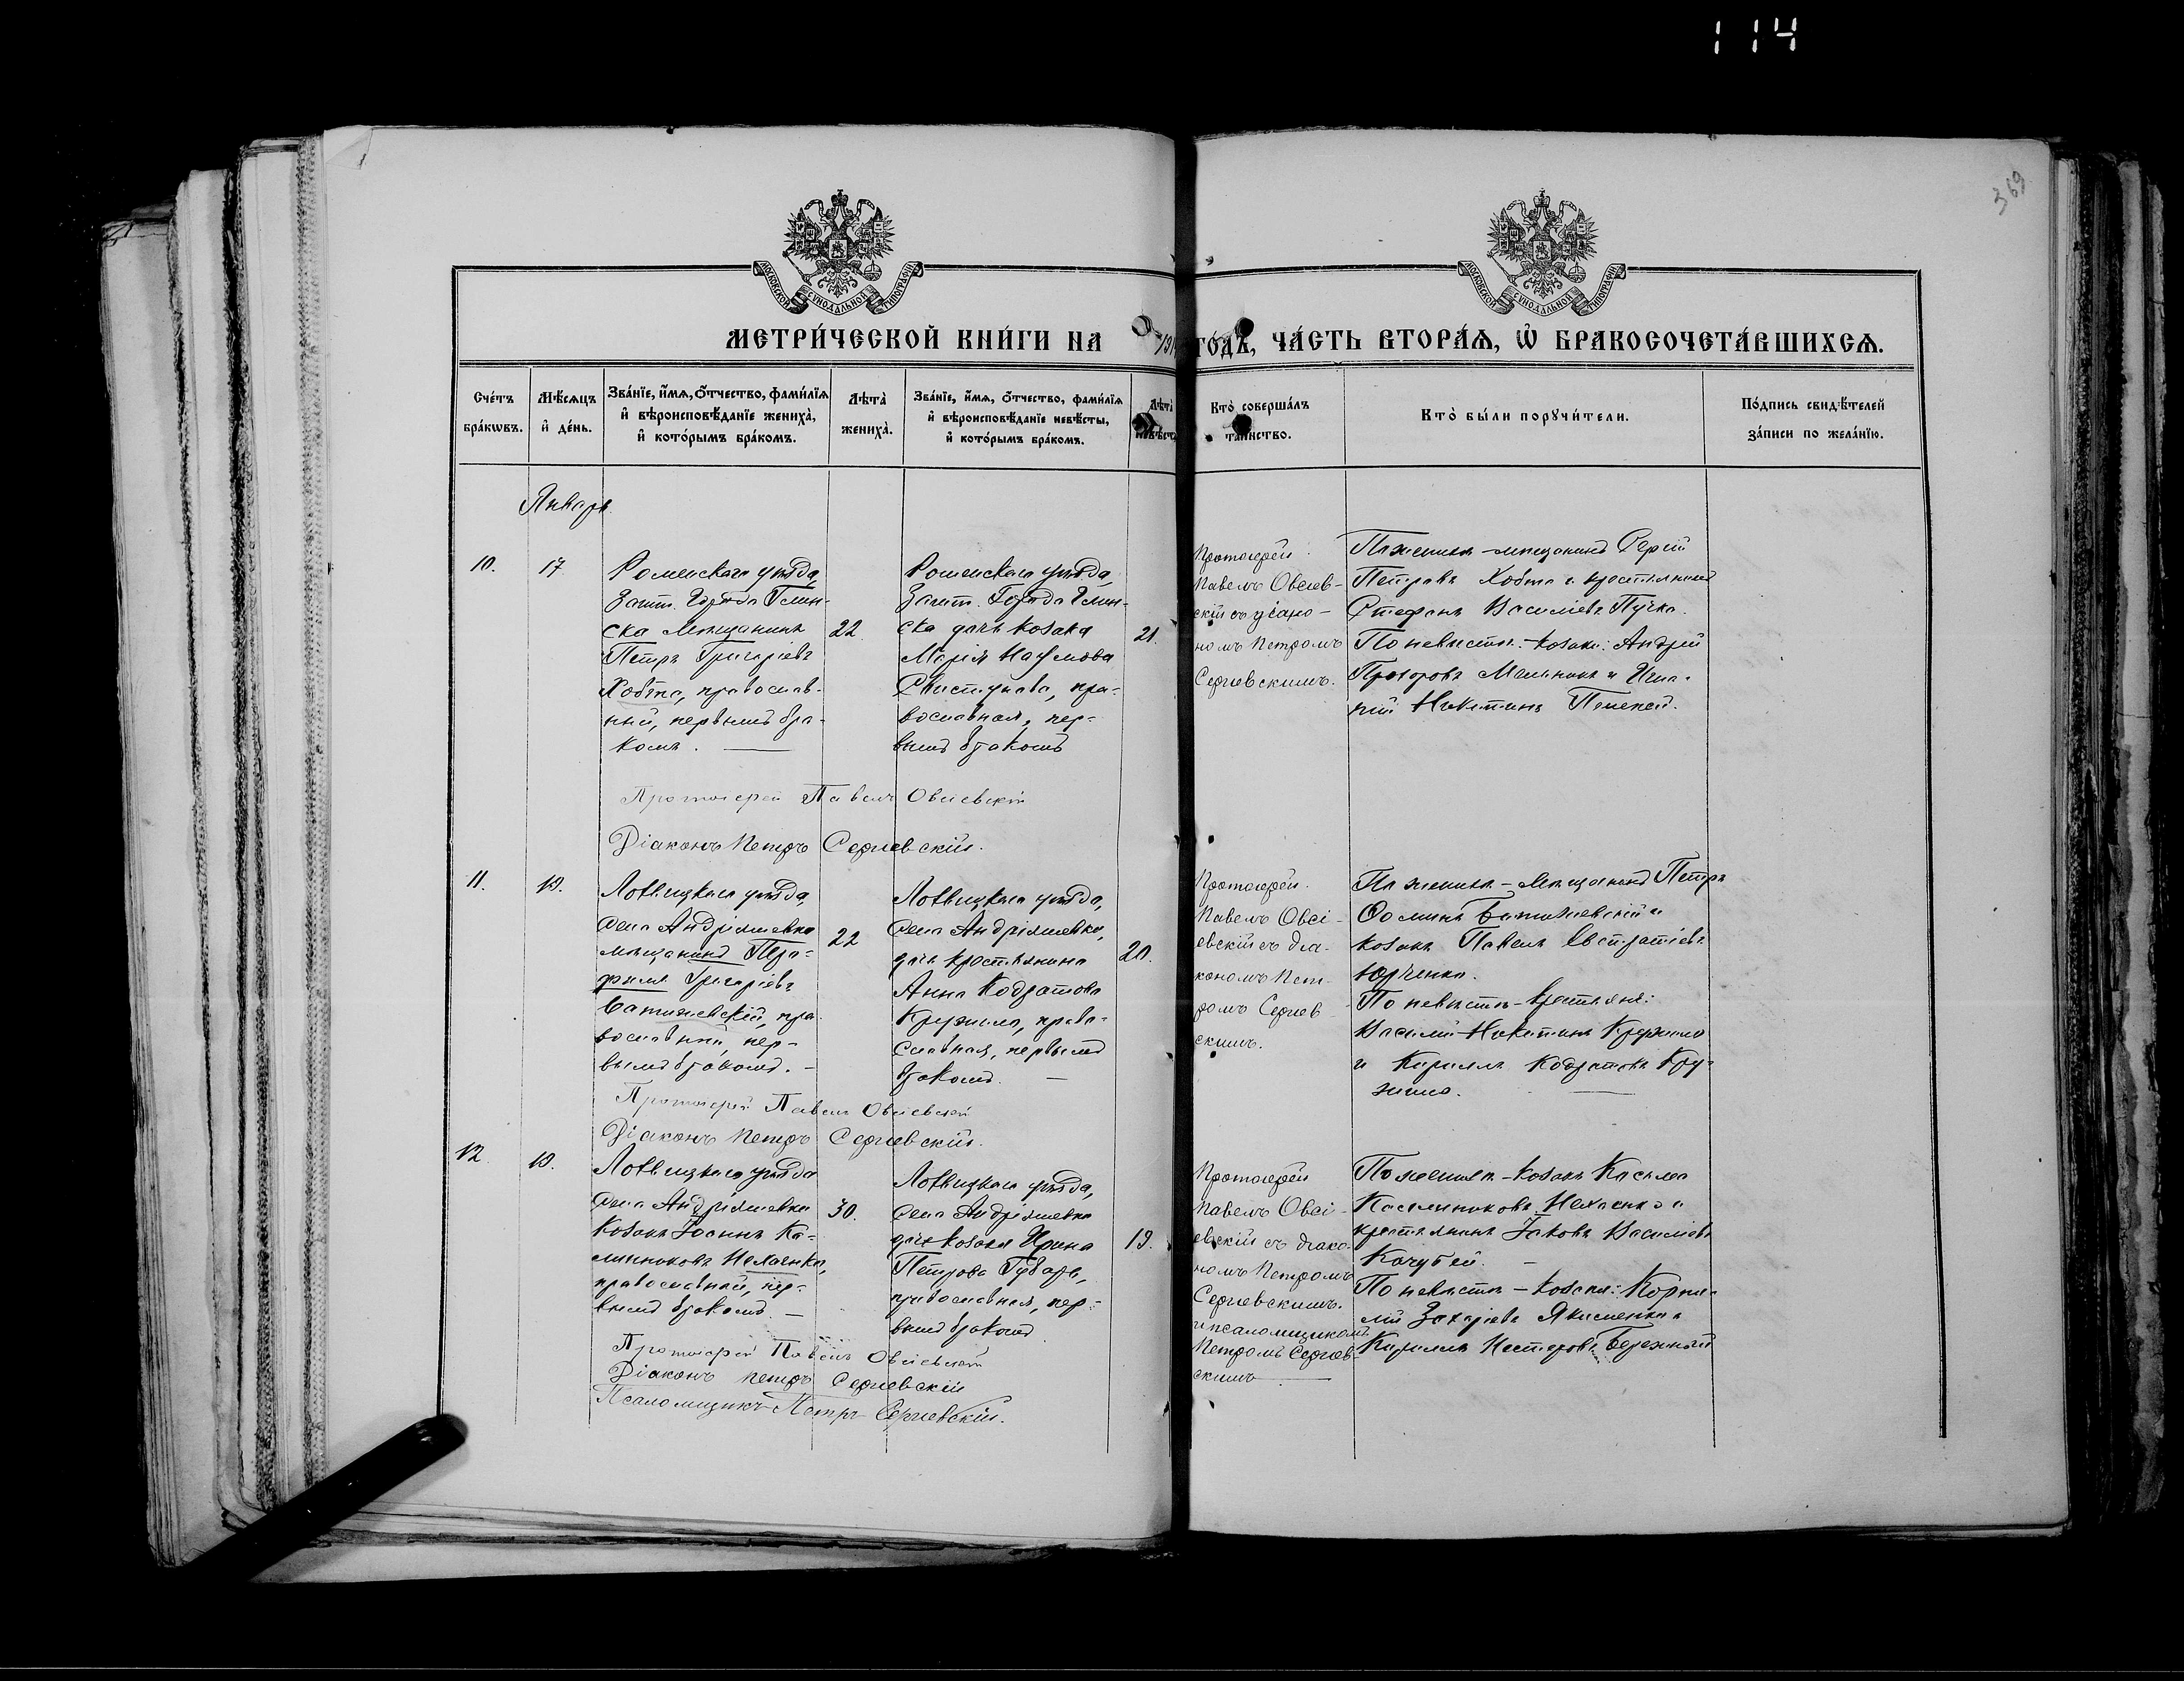 114
369
МОСКОВСКОЙ СѴНОДАЛЬНОЙ ТИПОГРАФІИ
МОСКОВСКОЙ СѴНОДАЛЬНОЙ ТИПОГРАФІИ
МЕТРИ́ЧЕСКОЙ КНИ́ГИ НА 191 ГО́ДЪ, ЧА́СТЬ ВТОРА́Ѧ, Ѡ БРАКОСОЧЕТА́ВШИХСѦ.
Сче́тъ бра́кѡвъ.
Мѣ́сяцъ и҆ де́нь.
Зва́нїе, и҆́мѧ, ѻ҆́тчество, фами́лїѧ
и҆ вѣроисповѣ́данїе жениха̀,
и҆ кото́рымъ бра́комъ.
Лѣта̀
жениха̀.
Зва́нїе, и҆́мѧ, ѻ҆́тчество, фами́лїѧ
и҆ вѣроисповѣ́данїе невѣ́сты,
и҆ кото́рымъ бра́комъ.
Лѣта̀
невѣсты
Кто̀ соверша́лъ
таинство.
Кто̀ бы́ли порꙋчи́тели.
По́дпись свидѣ́телей
за́писи по жела́нїю.
Январь
10.
17
Роменскаго уѣзда,
Зашт. Города Глин-
ска Мѣщанинъ
Петръ Григоріевъ
Хобта, православ-
ный, первымъ бра-
комъ.
22.
Роменскаго уѣзда,
Зашт. Города Глин-
ска дочь козака
Марія Наумова
Свистунова, пра-
вославная, пер-
вымъ бракомъ
21.
Протоіерей
Павелъ Овсіев-
скій съ діако-
номъ Петромъ
Сергіевскимъ.
По женихѣ - мѣщанинъ Сергій
Петровъ Хобта и крестьянинъ
Стефанъ Василіевъ Пучка.
По невѣстѣ: козаки: Андрей
Прохоровъ Мельникъ и Игна-
тій Никитинъ
Протоіерей Павелъ Овсіевскій
Діаконъ Петръ Сергіевскій.
11.
19.
Лохвицкаго уѣзда,
села Андріяшевки
мѣщанинъ
Григоріевъ
пра-
вославный, пер-
вымъ бракомъ.
22
Лохвицкаго уѣзда,
села Андріяшевки,
дочь крестьянина
Анна Кодратова
Кружило, право-
славная, первымъ
бракомъ.
20.
Протоіерей
Павелъ Овсі-
евскій съ діа-
кономъ Пет-
ромъ Сергіев-
скимъ.
По женихѣ - Мѣщанинъ Петръ
Ѳоминъ и
козакъ Павелъ Евстратіевъ
Юрченко.
По невѣстѣ - крестьяне:
Василій Никитинъ Кружило
и Кириллъ Кодратовъ Кру-
жило.
Протоіерей Павелъ Овсіевскій
Діаконъ Петръ Сергіевскій.
12
19.
Лохвицкаго уѣзда
села Андріяшевки
Козакъ Іоаннъ Ка-
линиковъ Нехаенко,
православный, пер-
вымъ бракомъ.
30.
Лохвицкаго уѣзда,
села Андріяшевки
дочь козака Ирина
Петрова Губарь,
православная, пер-
вымъ бракомъ
19.
Протоіерей
Павелъ Овсі-
евскій съ діако-
номъ Петромъ
Сергіевскимъ.
и псаломщикомъ
Петромъ Сергіев-
скимъ
По женихѣ - козакъ Косьма
Калиниковъ Нехаенко и
крестьянинъ Іаковъ Василіевъ
Кочубей.
По невѣстѣ - козаки: Корни-
лій Захаріевъ Якименко и
Кириллъ Несторовъ Бережный
Протоіерей Павелъ Овсіевскій
Діаконъ Петръ Сергіевскій
Псаломщикъ Петръ Сергіевскій.